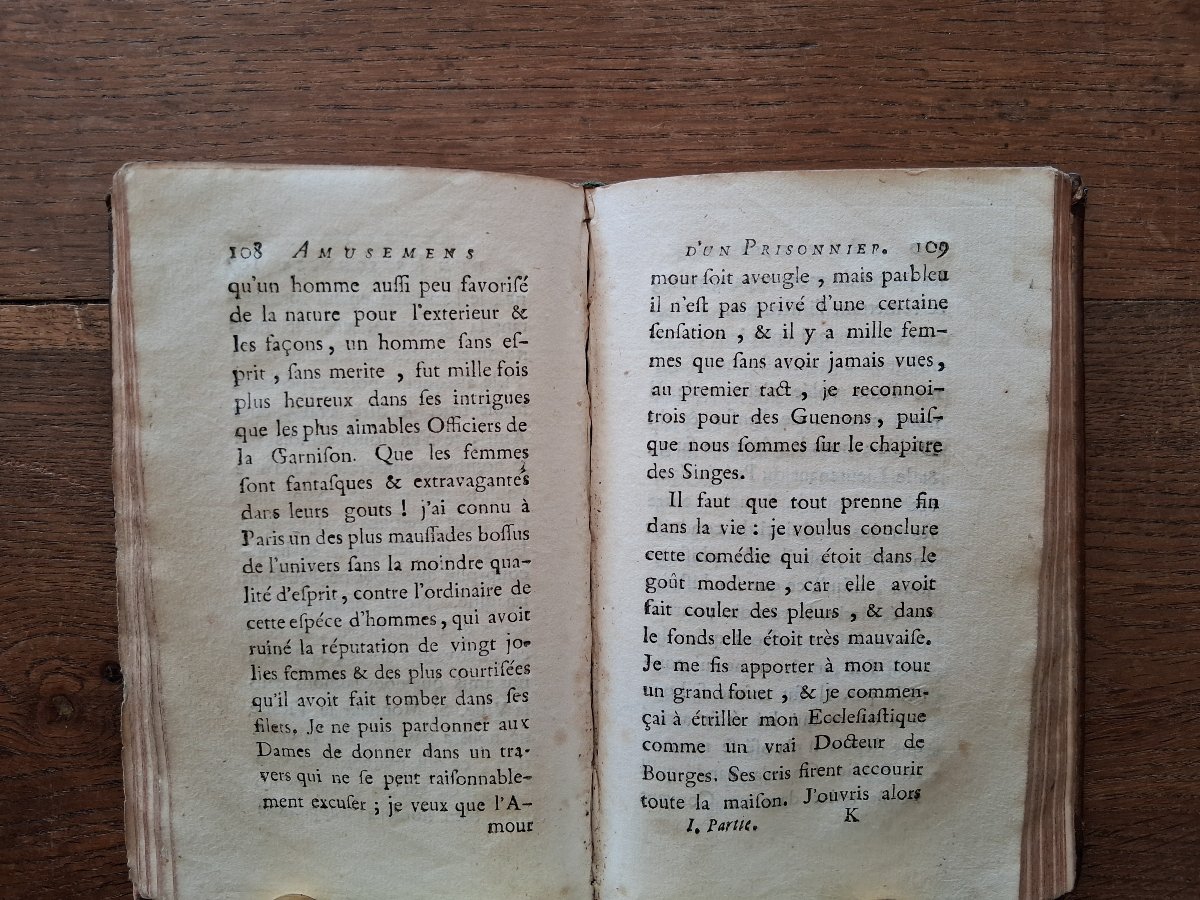 108 AMUSEMENS
qu'un homme auſſi peu favoriſé
de la nature pour l'exterieur &
les façons, un homme ſans eſ-
prit, ſans merite, fut mille fois
plus heureux dans ſes intrigues
que les plus aimables Officiers de
la Garniſon. Que les femmes
ſont fantaſques & extravagantes
dans leurs gouts ! j'ai connu à
Paris un des plus mauſſades boſſus
de l'univers ſans la moindre qua-
lité d'eſprit, contre l'ordinaire de
cette eſpéce d'hommes, qui avoit
ruiné la réputation de vingt jo-
lies femmes & des plus courtiſées
qu'il avoit fait tomber dans ſes
filets. Je ne puis pardonner aux
Dames de donner dans un tra-
vers qui ne ſe peut raiſonnable-
ment excuſer ; je veux que l'A-
mour
D'UN PRISONNIER. 109
mour ſoit aveugle, mais parbleu
il n'eſt pas privé d'une certaine
ſenſation, & il y a mille fem-
mes que ſans avoir jamais vues,
au premier tact, je reconnoi-
trois pour des Guenons, puiſ-
que nous ſommes ſur le chapitre
des Singes.
Il faut que tout prenne fin
dans la vie : je voulus conclure
cette comédie qui étoit dans le
goût moderne, car elle avoit
fait couler des pleurs, & dans
le fonds elle étoit très mauvaiſe.
Je me fis apporter à mon tour
un grand fouet, & je commen-
çai à étriller mon Eccleſiaſtique
comme un vrai Docteur de
Bourges. Ses cris firent accourir
toute la maiſon. J'ouvris alors
I. Partie. K